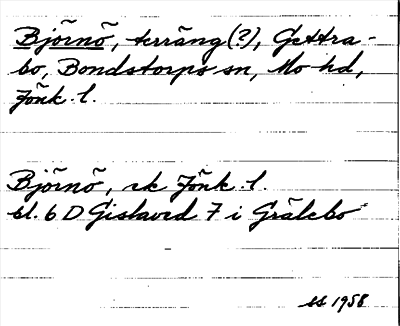 Björnö, terräng (?), Gettra-
bo, Bondstorps sn, Mo hd,
Jönk. l.
Björnö, ek Jönk. l.
bl. 6 D Gislaved 7 i Grälebo
1958